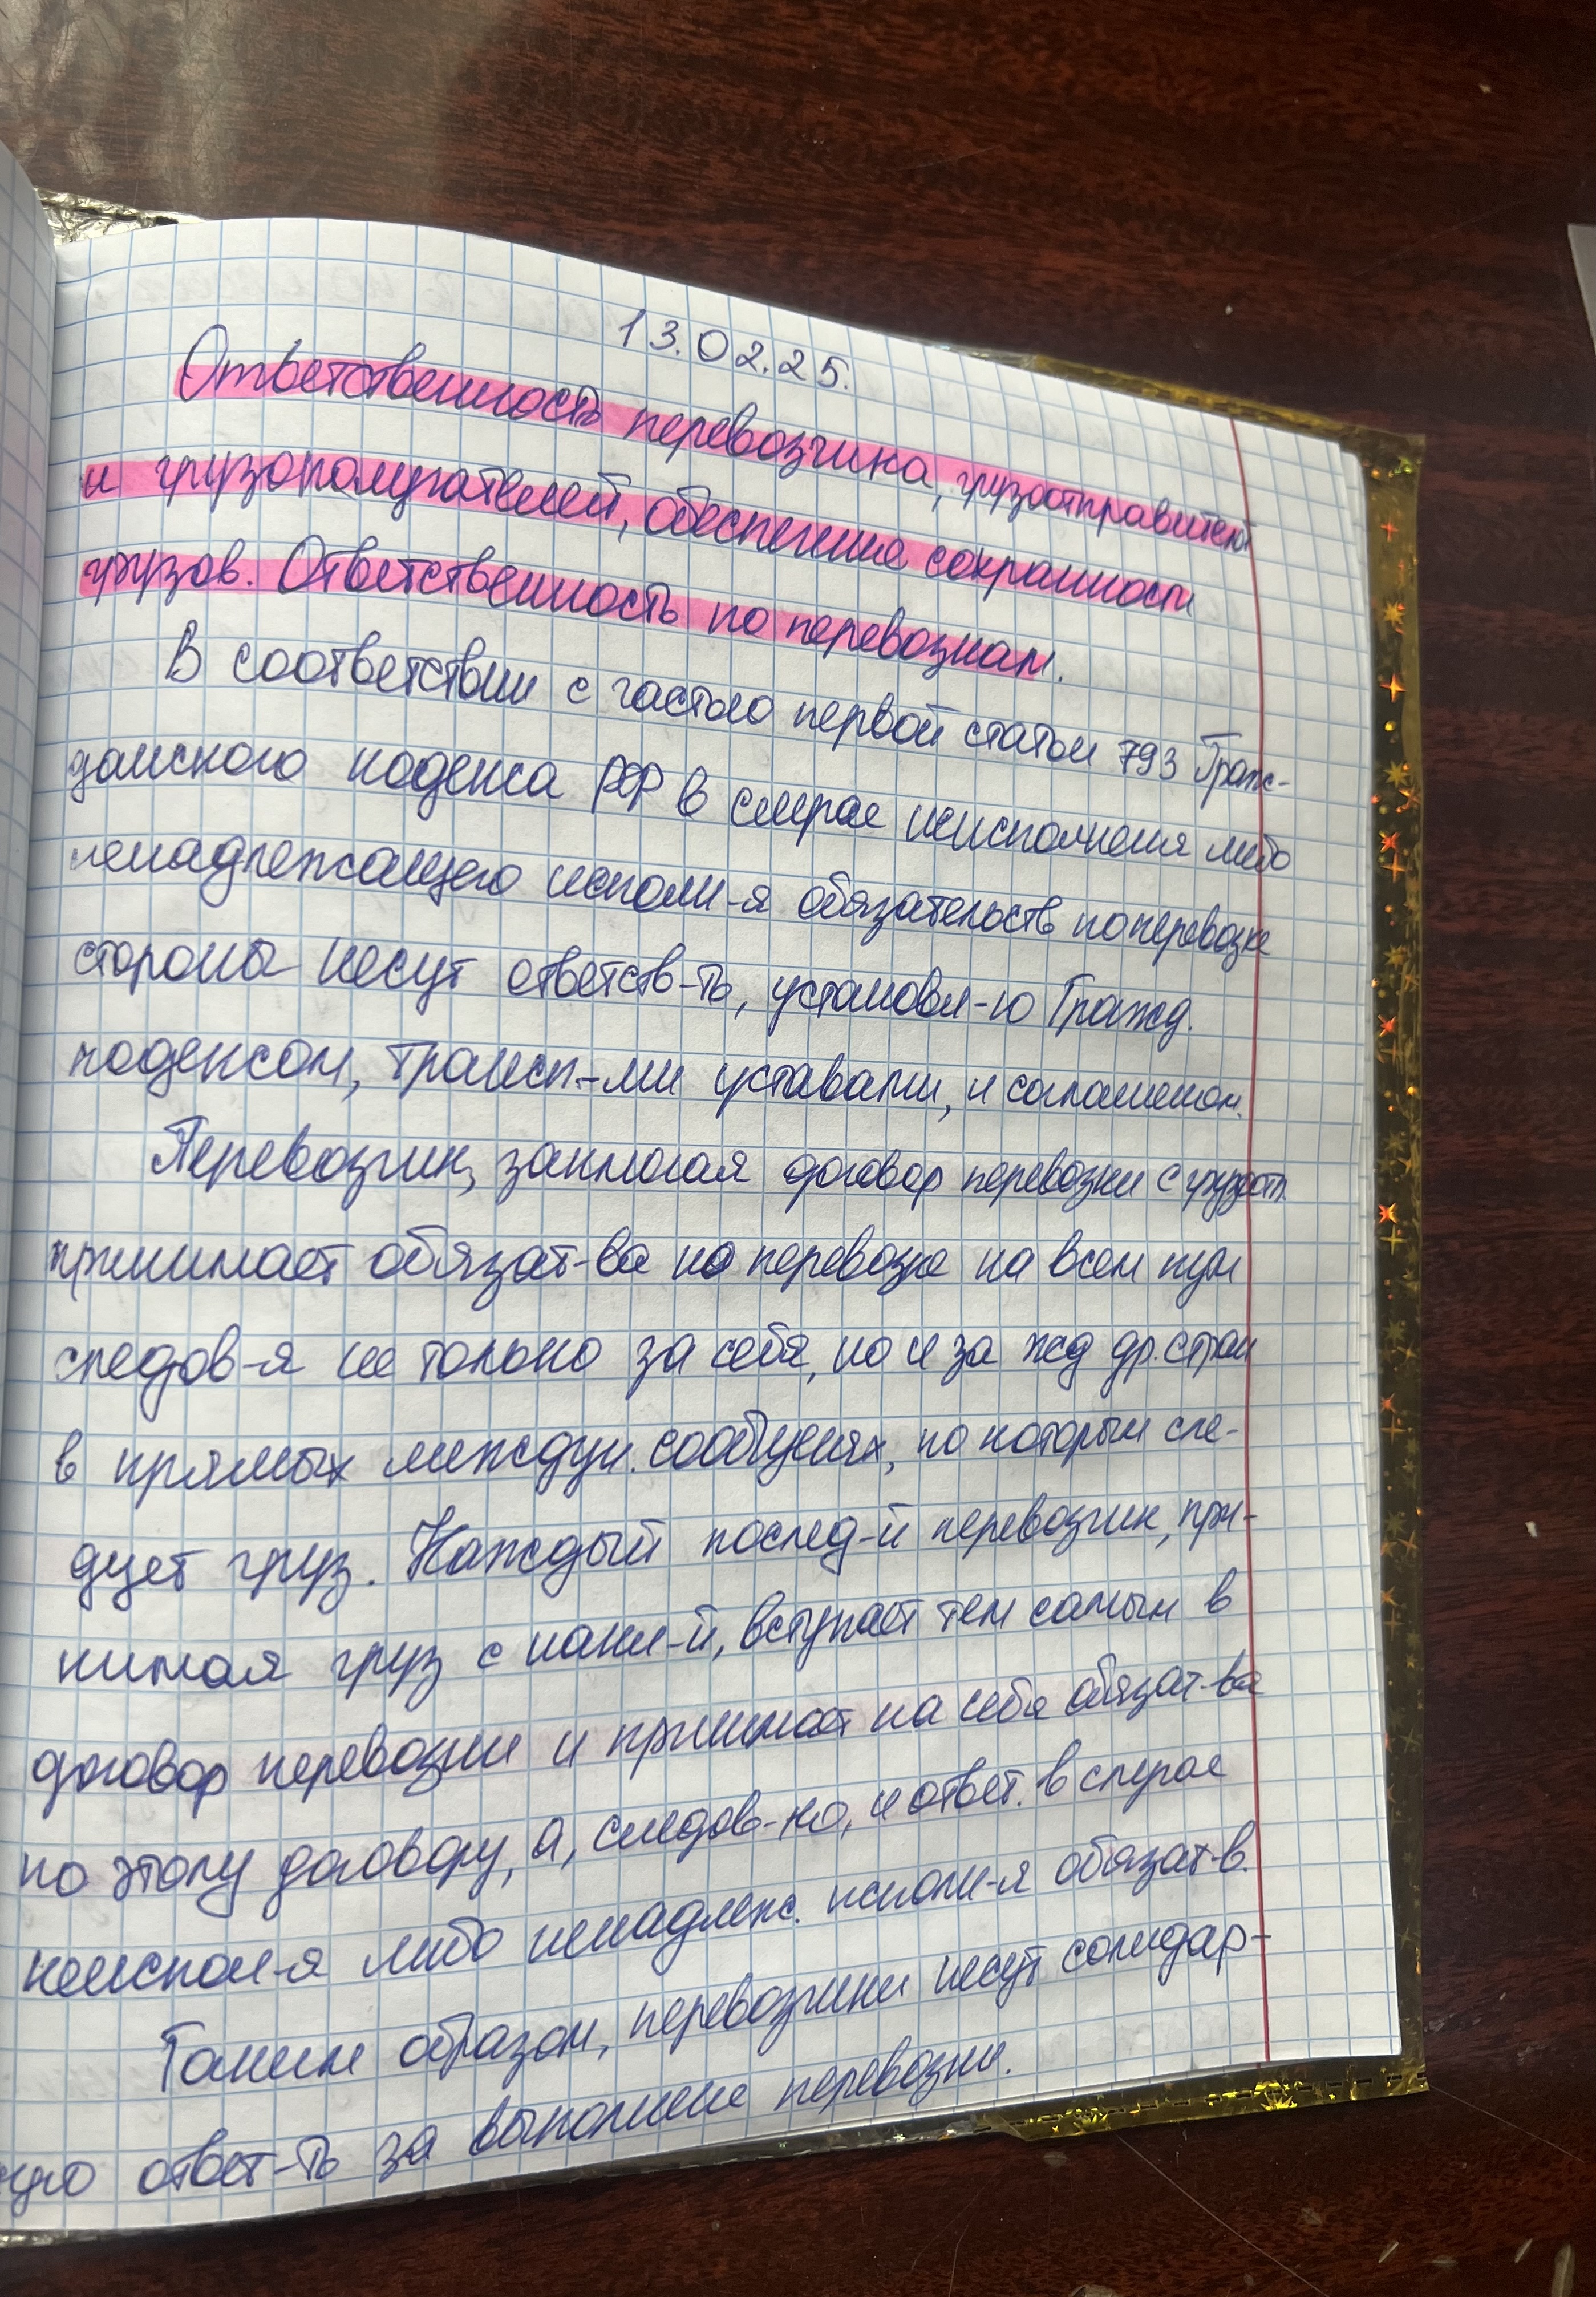 13.02.25.
Ответственность перевозчика, грузоотправителя
и грузополучателей, обеспечение сохранности
грузов. Ответственность по перевозкам.
В соответствии с частью первой статьи 793 Граж-
данского кодекса РФ в случае неисполнения либо
ненадлежащего исполн-я обязательств по перевозке
стороны несут ответств-ть, установл-ю Гражд.
кодексом, трансп-ми уставами, и соглашением.
Перевозчик, заключая договор перевозки с грузоотп.
принимает обязат-ва по перевозке на всем пути
следов-я не только за себя, но и за жд др. стран
в прямых междун. сообщениях, по которым сле-
дует груз. Каждый послед-й перевозчик, при-
нимая груз с накл-й, вступает тем самым в
договор перевозки и принимает на себя обязат-ва
по этому договору, а, следов-но, и ответ. в случае
неиспол-я либо ненадлеж. исполн-я обязат-в.
Таким образом, перевозчики несут солидар-
ную ответ-ть за выполнение перевозки.